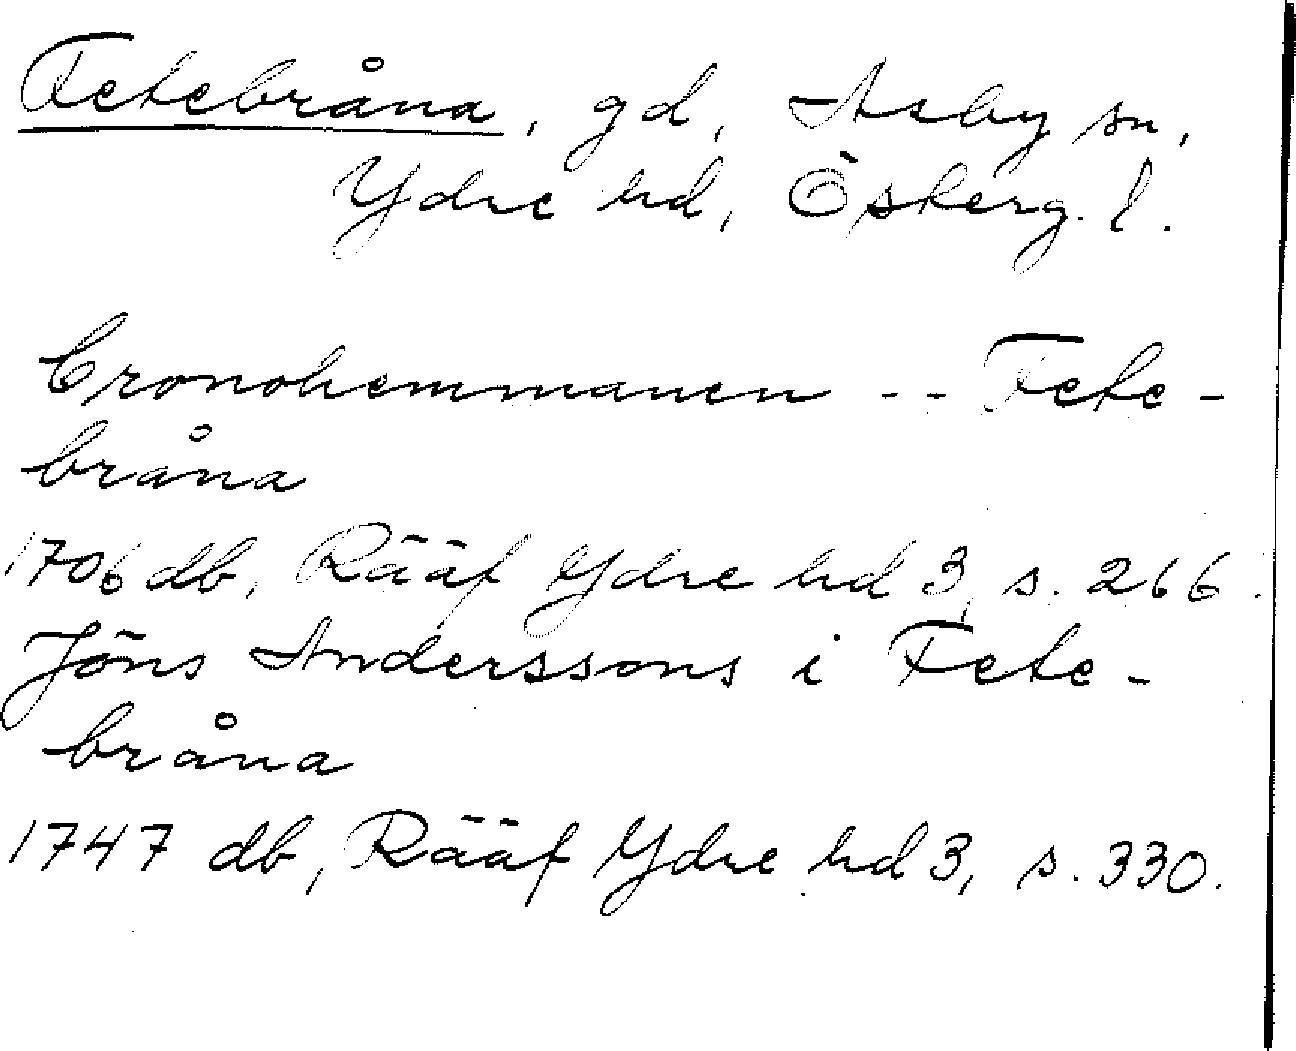 Fetebråna, gd, Asby sn,
Ydre hd, Österg. l.
Cronohemmanen -- Fete-
bråna
1706 db, Rääf Ydre hd 3, s. 266.
Jöns Anderssons i Fete-
bråna
1747 db, Rääf Ydre hd 3, s. 330.